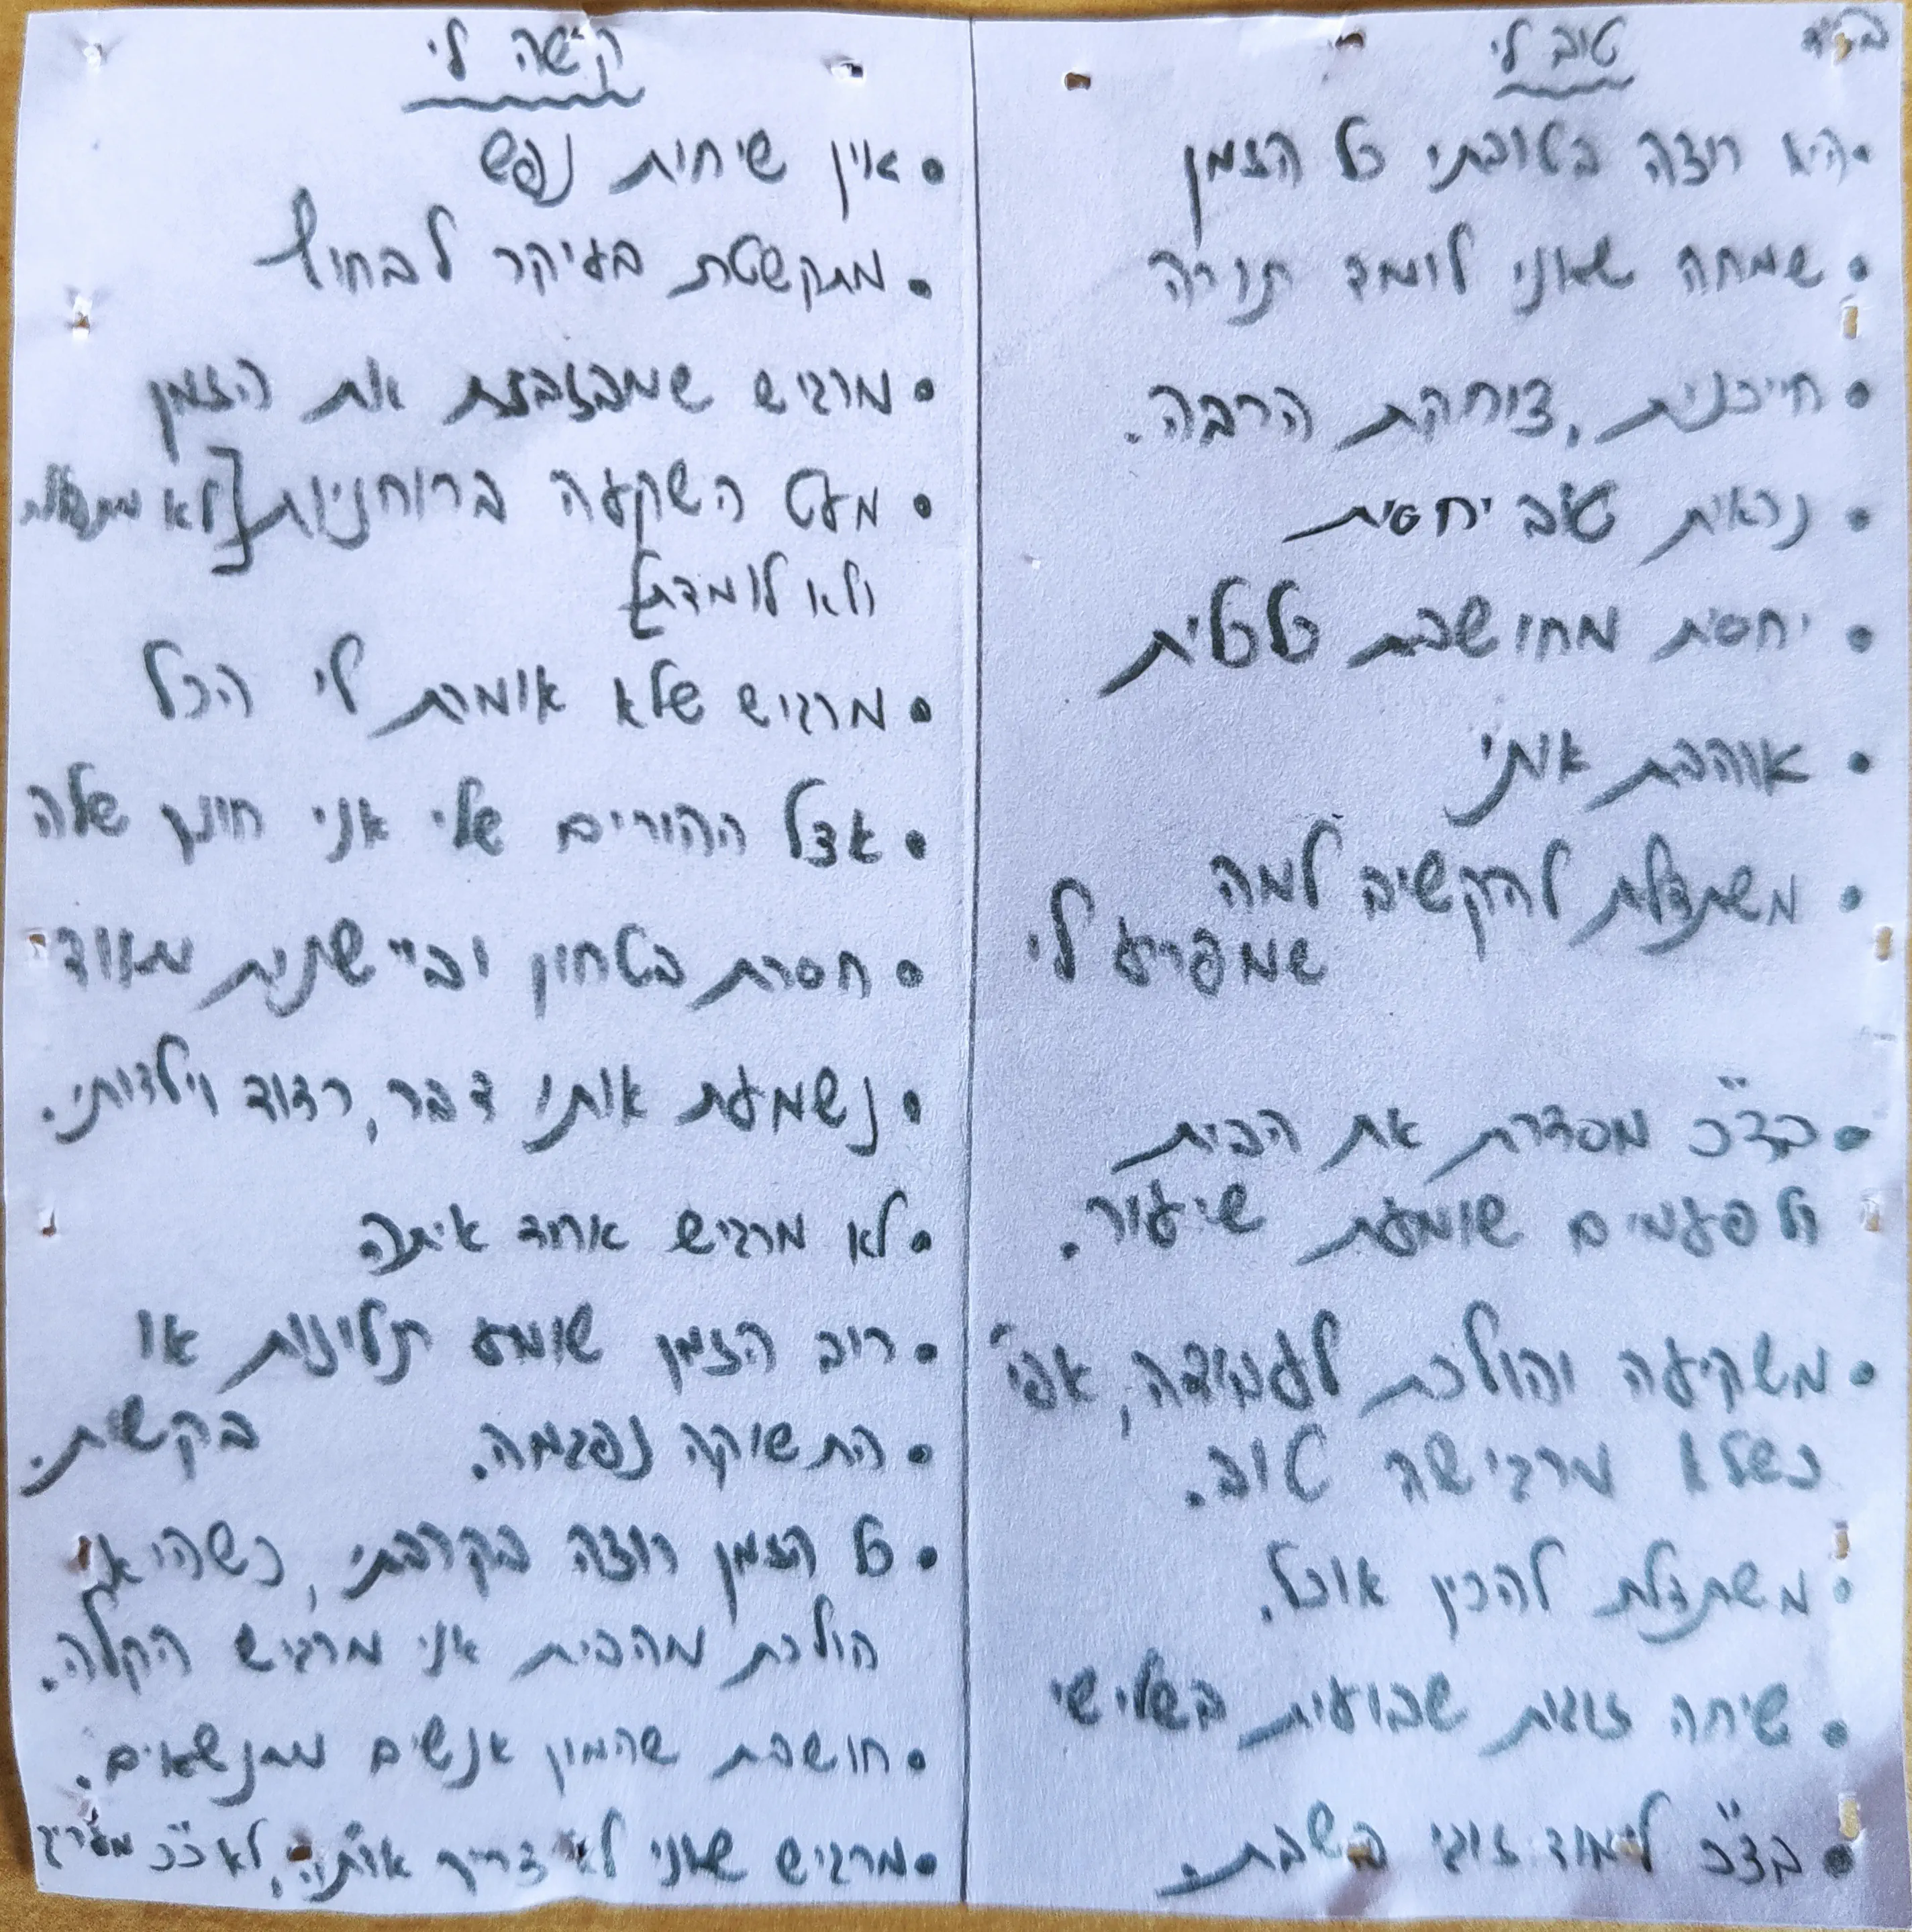 בס"ד
טוב לי
• היא רוצה בטובתי כל הזמן
• שמחה שאני לומד תורה
• חייכנית, צוחקת הרבה.
• נראית טוב יחסית
• יחסית מחושבת כלכלית
• אוהבת אותי
• משתדלת להקשיב למה
שמפריע לי
• בד"כ מסדרת את הבית
ולפעמים שומעת שיעור.
• משקיעה והולכת לעבודה, אפי'
כשלא מרגישה טוב.
• משתדלת להכין אוכל.
• שיחה זוגית שבועית בשלישי
• בד"כ לימוד זוגי בשבת.
קשה לי
• אין שיחות נפש
• מתקשטת בעיקר לבחוץ
• מרגיש שמבזבזת את הזמן
• מעט השקעה ברוחניות [לא מתפללת
ולא לומדת]
• מרגיש שלא אומרת לי הכל
• אצל ההורים שלי אני חונק שלה
• חסרת בטחון וביישנית מאוד
• נשמעת אותו דבר, רדוד וילדותי.
• לא מרגיש אחד איתה
• רוב הזמן שומע תלונות או
בקשות.
• התשוקה נפגמה.
• כל הזמן רוצה בקרבתי, כשהיא
הולכת מהבית אני מרגיש הקלה.
• חושבת שהמון אנשים מתנשאים.
• מרגיש שאני לא צריך אותה, לא כ"כ מעריך